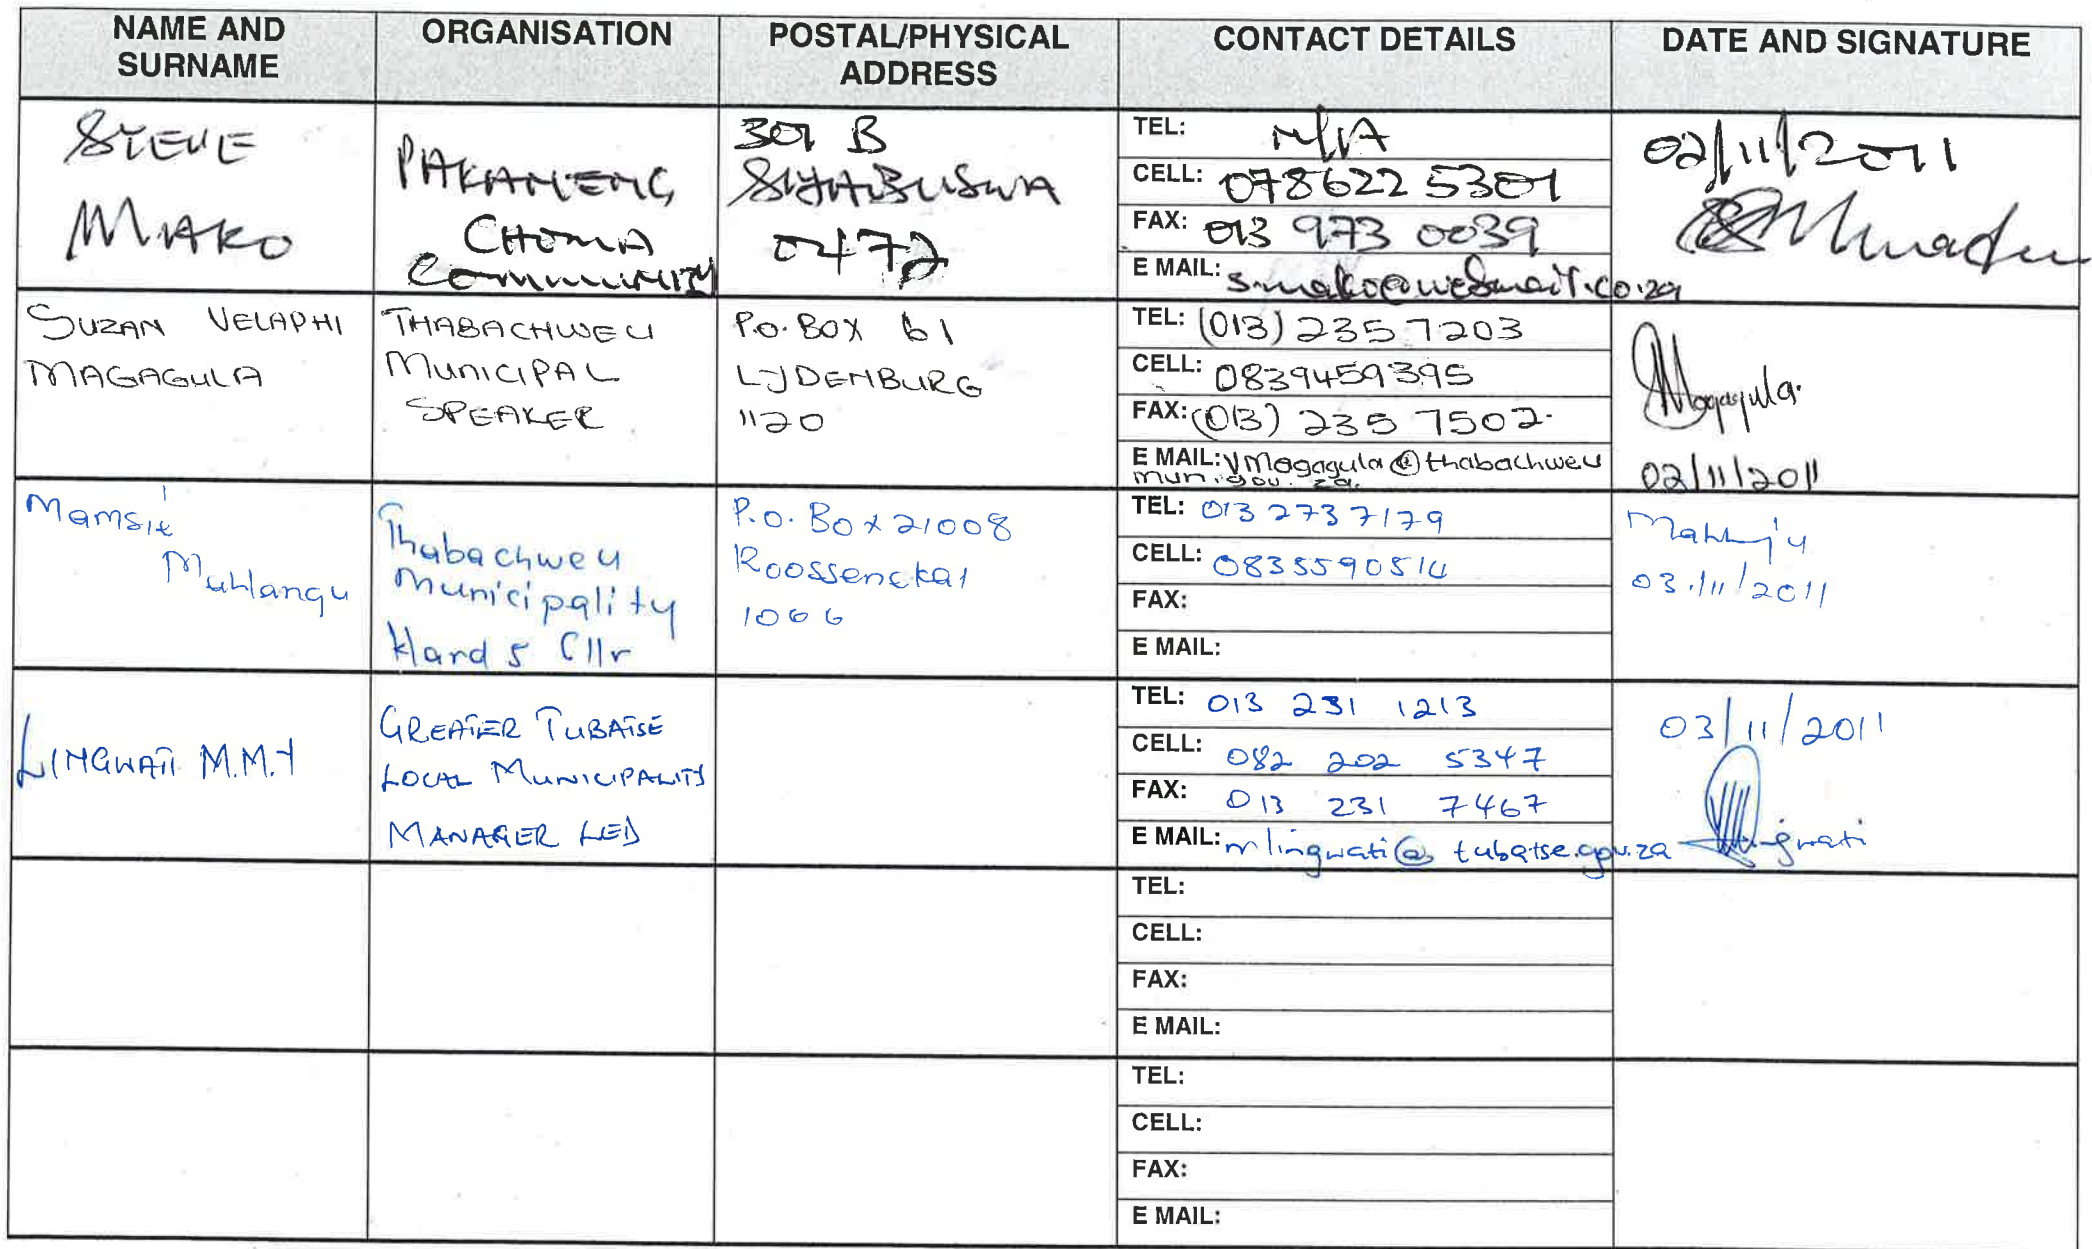 NAME AND SURNAME
ORGANISATION
POSTAL/PHYSICAL ADDRESS
CONTACT DETAILS
DATE AND SIGNATURE
STEVE
MAKO
PAKANENG
CHOMA
COMMUNITY
301 B
SIYABUSWA
0472
TEL: N/A
CELL: 078622 5301
FAX: 013 973 0039
E MAIL: s.mako@webmail.co.za
02/11/2011
SUZAN VELAPHI
MAGAGULA
THABACHWEU
MUNICIPAL
SPEAKER
P.O. BOX 61
LYDENBURG
1120
TEL: (013) 235 7203
CELL: 0839459395
FAX: (013) 235 7502
E MAIL: VMagagula@thabachweu
mun.gov.za.
Magagula
02/11/2011
Mamsie
Mahlangu
Thabachweu
Municipality
Ward 5 Cllr
P.O. Box 21008
Roossenekal
1066
TEL: 013 273 7179
CELL: 0835590514
FAX:
E MAIL:
03/11/2011
LINGWATI M.M.T
GREATER TUBATSE
LOCAL MUNICIPALITY
MANAGER LED
TEL: 013 231 1213
CELL: 082 202 5347
FAX: 013 231 7467
E MAIL: mlingwati@tubatse.gov.za
03/11/2011
TEL:
CELL:
FAX:
E MAIL:
TEL:
CELL:
FAX:
E MAIL: